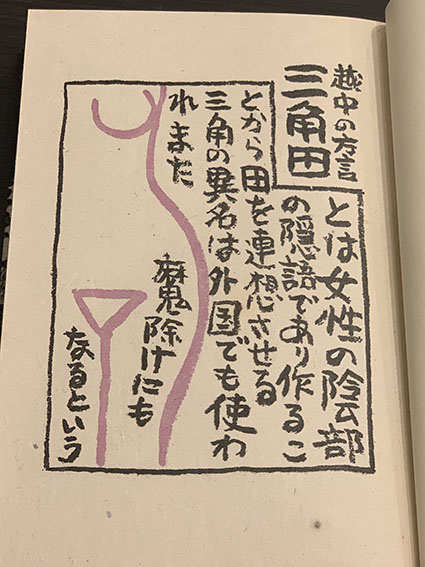 越中の方言
三角田
とは女性の陰部
の隠語であり作るこ
とから田を連想させる
三角の異名は外国でも使わ
れまた
魔除けにも
なるという